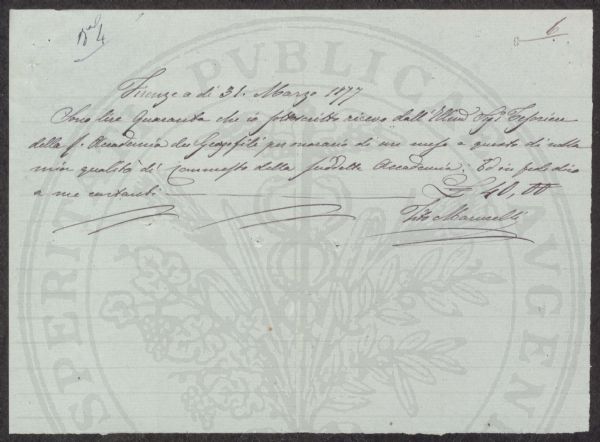 N° 4
6
Firenze a dì 31. Marzo 1877
Sono lire Quaranta che io sottoscritto ricevo dall' Illmo Sigr Tesoriere
della R. Accademia dei Georgofili per onorario di un mese a questo dì nella
mia qualità di Commesso della suddetta Accademia. Ed in fede dico
a me contanti £ 40,00
Tito Marucelli
PUBLICAE
PROSPERITATI AUGENDAE